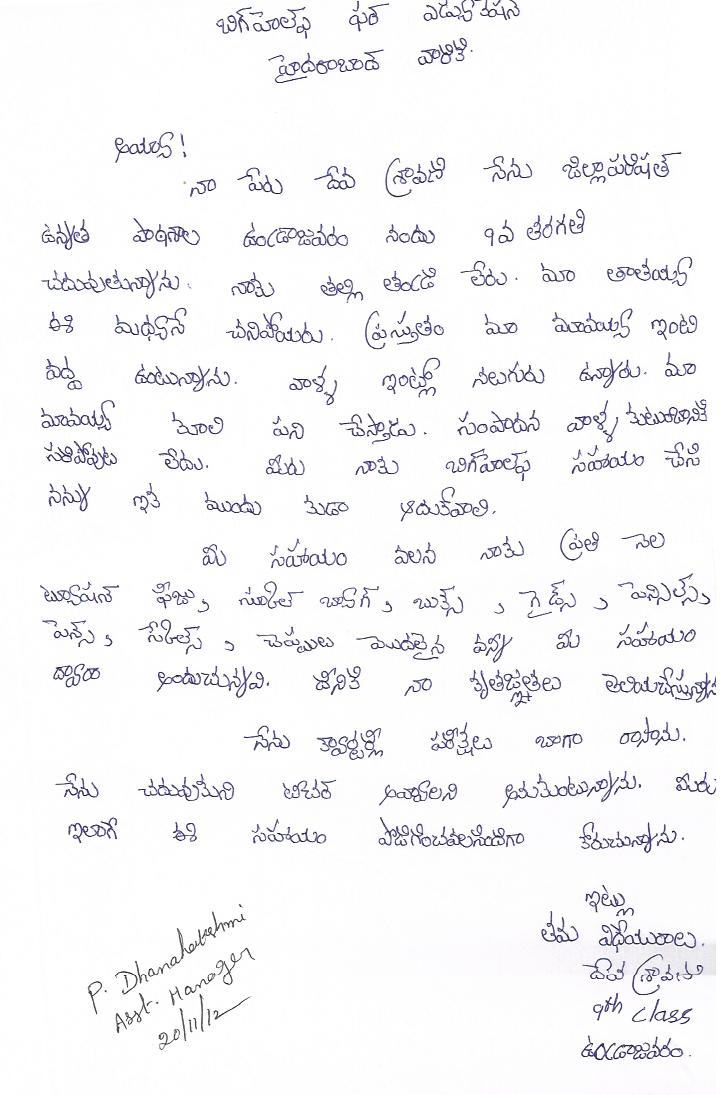 బిగ్‌హెల్ప్ ఫర్ ఎడ్యుకేషన్
హైదరాబాద్ వారికి.
అయ్యా!
నా పేరు దేవ శ్రావణి నేను జిల్లాపరిషత్
ఉన్నత పాఠశాల ఉండ్రాజవరం నందు 9వ తరగతి
చదువుతున్నాను. నాకు తల్లి తండ్రి లేరు. మా తాతయ్య
ఈ మధ్యనే చనిపోయరు. ప్రస్తుతం మా మావయ్య ఇంటి
వద్ద ఉంటున్నాను. వాళ్ళ ఇంట్లో నలుగురు ఉన్నారు. మా
మావయ్య కూలి పని చేస్తాడు. సంపాదన వాళ్ళ కుటుంబానికే
సరిపోవుట లేదు. మీరు నాకు బిగ్‌హెల్ప్ సహాయం చేసి
నన్ను ఇక ముందు కుడా ఆదుకోవాలి.
మీ సహాయం వలన నాకు ప్రతి నెల
ట్యూషన్ ఫీజు, స్కూల్ బ్యాగ్, బుక్స్, గైడ్స్, పెన్సిల్స్,
పెన్స్, స్కేల్స్, చెప్పులు మొదలైన వన్నీ మీ సహాయం
ద్వారా అందుచున్నవి. దీనికి నా కృతజ్ఞతలు తెలియచేస్తున్నాను
నేను క్వార్టర్లీ పరీక్షలు బాగా రాసాను.
నేను చదువుకుని టీచర్ అవ్వాలని అనుకుంటున్నాను. మీరు
ఇలాగే ఈ సహాయం పొడిగించవలసిందిగా కోరుచున్నాను.
ఇట్లు
తమ విధేయురాలు.
దేవ శ్రావణి
9th class
ఉండ్రాజవరం.
P. Dhanalakshmi
Asst. Manager
20/11/12